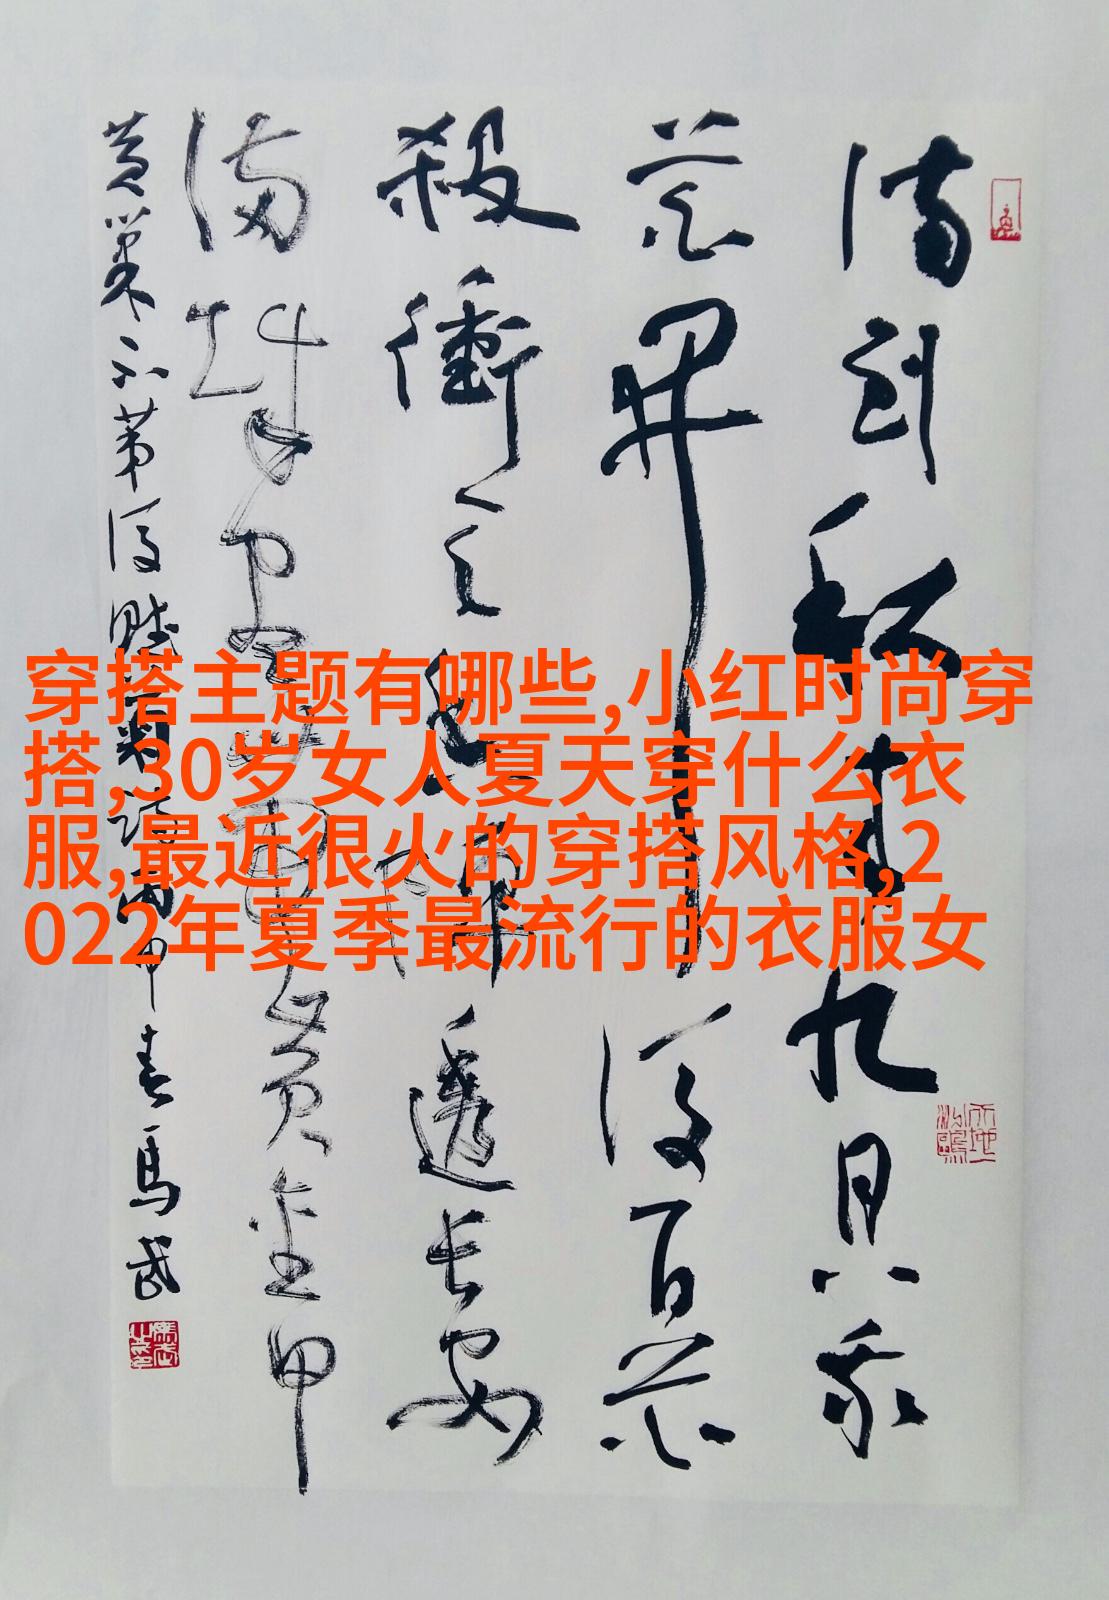 待到秋来九月八我
花開後百花
殺衝天香陣透長安
满城盡帶黃金甲
黄巢不第後賦菊詩丙申春馬武
穿搭主题有哪些,小红时尚穿
搭,30岁女人夏天穿什么衣
服,最近很火的穿搭风格,2
022年夏季最流行的衣服女